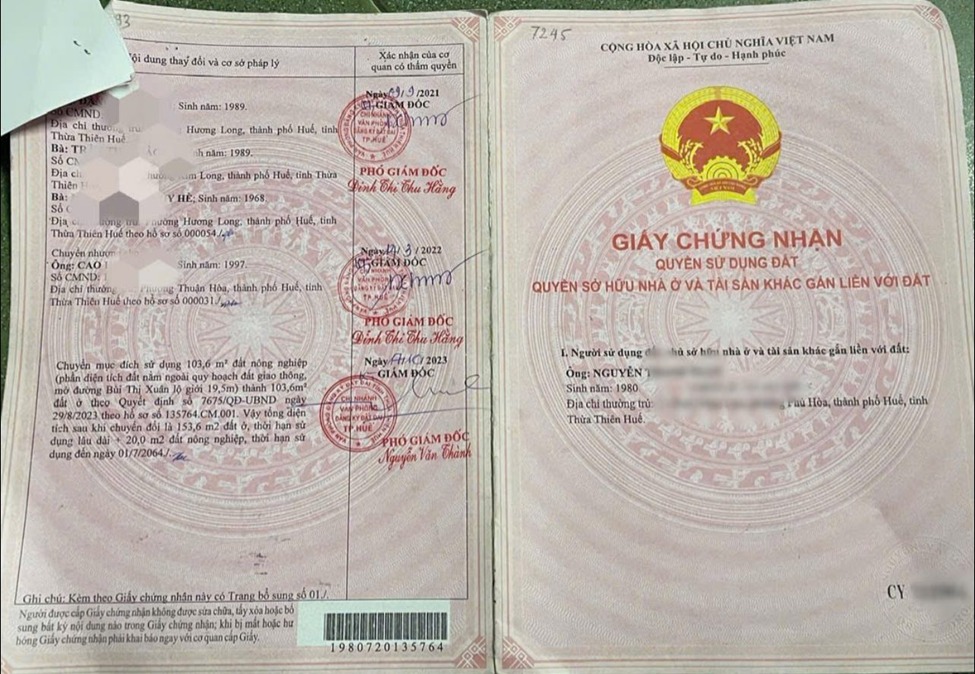 93
Nội dung thay đổi và cơ sở pháp lý
Xác nhận của cơ
quan có thẩm quyền
Sinh năm: 1989.
Số CMND
Địa chỉ thường Hương Long, thành phố Huế, tỉnh
Thừa Thiên Huế
Bà: sinh năm: 1989.
Địa Long, thành phố Huế, tỉnh Thừa
Thiên
Bà: Y HÈ; Sinh năm: 1968.
Phường Hương Long, thành phố Huế, tỉnh
Thừa Thiên Huế theo hồ sơ số 000054./
Ngày /2021
GIÁM ĐỐC
CHI NHÁNH
VĂN PHÒNG
ĐĂNG KÝ ĐẤT ĐAI
TP.HUẾ
PHÓ GIÁM ĐỐC
Đinh Thị Thu Hằng
Chuyển nhượng
Ông: CAO Sinh năm: 1997.
Số CMND:
Địa chỉ thường Phường Thuận Hòa, thành phố Huế, tỉnh
Thừa Thiên Huế theo hồ sơ số 000031./
Ngày /3/2022
GIÁM ĐỐC
PHÓ GIÁM ĐỐC
Đinh Thị Thu Hằng
Chuyển mục đích sử dụng 103,6 m² đất nông nghiệp
(phần diện tích đất nằm ngoài quy hoạch đất giao thông,
mở đường Bùi Thị Xuân lộ giới 19,5m) thành 103,6m²
đất ở theo Quyết định số 7675/QĐ-UBND ngày
29/8/2023 theo hồ sơ số 135764.CM.001. Vậy tổng diện
tích sau khi chuyển đổi là 153,6 m2 đất ở, thời hạn sử
dụng lâu dài + 20,0 m2 đất nông nghiệp, thời hạn sử
dụng đến ngày 01/7/2064./.
Ngày 2023
GIÁM ĐỐC
CHI NHÁNH
VĂN PHÒNG
ĐĂNG KÝ ĐẤT ĐAI
TP HUẾ
PHÓ GIÁM ĐỐC
Nguyễn Văn Thành
Ghi chú: Kèm theo Giấy chứng nhận này có Trang bổ sung số 01./.
Người được cấp Giấy chứng nhận không được sửa chữa, tẩy xóa hoặc bổ
sung bất kỳ nội dung nào trong Giấy chứng nhận; khi bị mất hoặc hư
hỏng Giấy chứng nhận phải khai báo ngay với cơ quan cấp Giấy.
1980720135764
7245
CỘNG HÒA XÃ HỘI CHỦ NGHĨA VIỆT NAM
Độc lập - Tự do - Hạnh phúc
GIẤY CHỨNG NHẬN
QUYỀN SỬ DỤNG ĐẤT
QUYỀN SỞ HỮU NHÀ Ở VÀ TÀI SẢN KHÁC GẮN LIỀN VỚI ĐẤT
I. Người sử dụng sở hữu nhà ở và tài sản khác gắn liền với đất:
Ông: NGUYỄN
Sinh năm: 1980
Địa chỉ thường trú: Phú Hòa, thành phố Huế, tỉnh
Thừa Thiên Huế.
CY